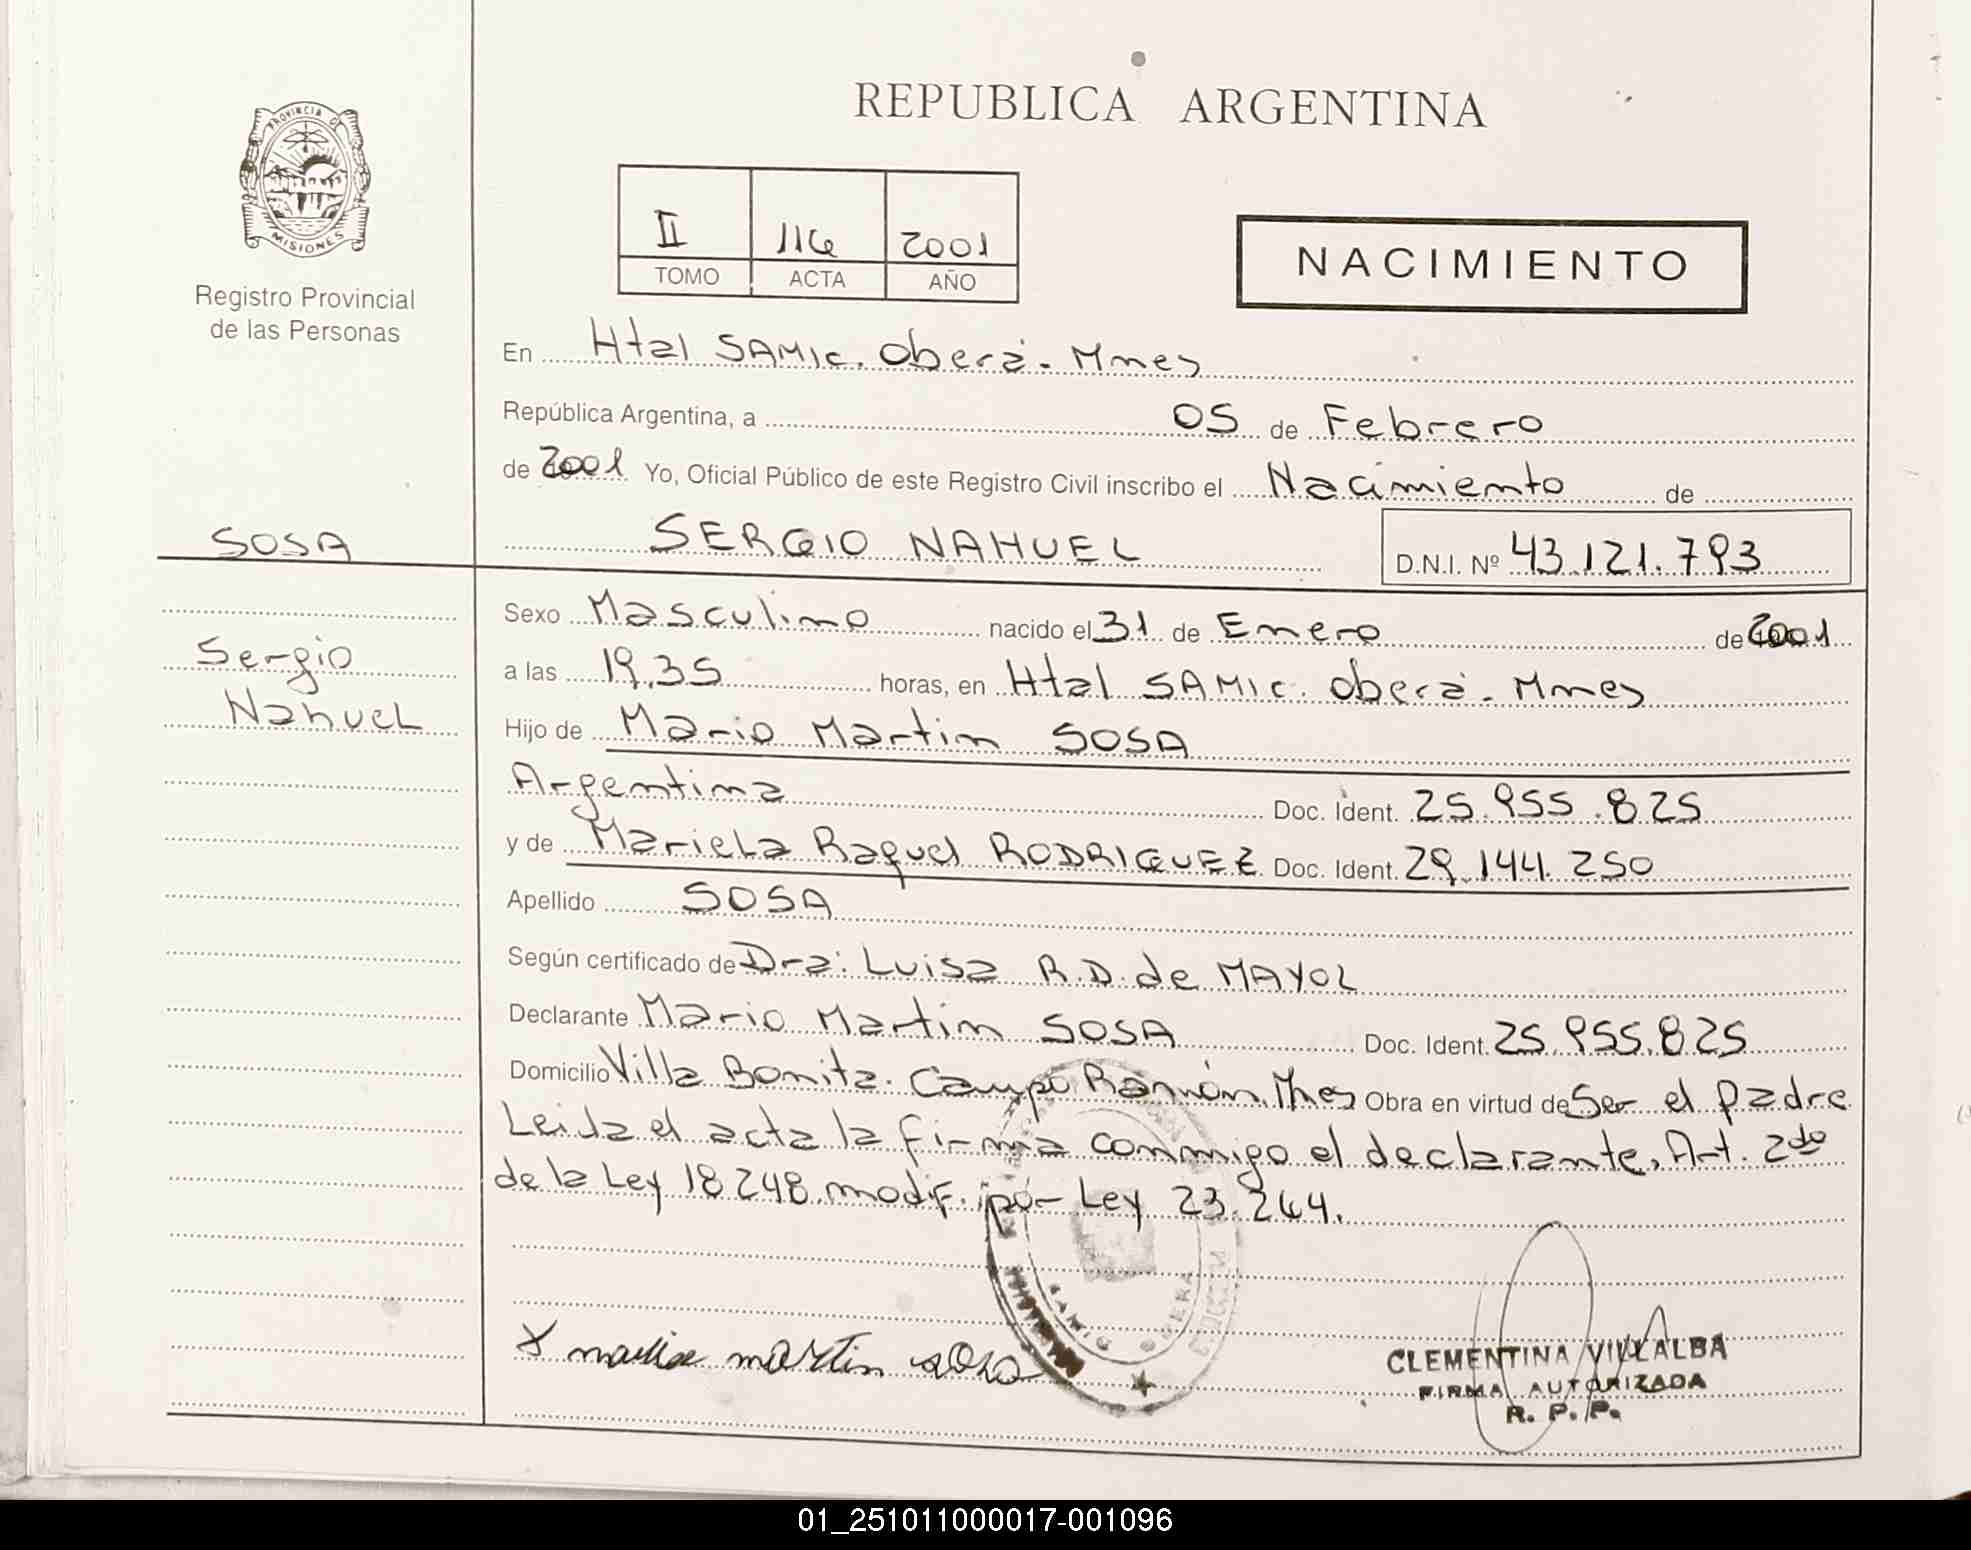 REPUBLICA ARGENTINA
PROVINCIA DE
MISIONES
Registro Provincial
de las Personas
II 116 2001
TOMO ACTA AÑO
NACIMIENTO
En Htal SAMIC. Oberá. Mnes
República Argentina, a 05 de Febrero
de 2001 Yo, Oficial Público de este Registro Civil inscribo el Nacimiento de
SOSA SERGIO NAHUEL D.N.I. Nº 43.121.793
Sexo Masculino nacido el 31 de Enero de 2001
Sergio
a las 19,35 horas, en Htal SAMIC. Oberá. Mnes
Nahuel
Hijo de Mario Martin SOSA
Argentina Doc. Ident. 25.955.825
y de Mariela Raquel RODRIGUEZ Doc. Ident. 29.144.250
Apellido SOSA
Según certificado de Dra: Luisa R.D. de MAYOL
Declarante Mario Martin SOSA Doc. Ident. 25.955.825
Domicilio Villa Bonita. Campo Ramón. Mnes Obra en virtud de Ser el padre
Leida el acta la firma conmigo el declarante, Art. 2do
de la Ley 18248 modif. por Ley 23.264.
SAMIC OBERA
X martin sosa
CLEMENTINA VILLALBA
FIRMA AUTORIZADA
R. P. P.
01_251011000017-001096